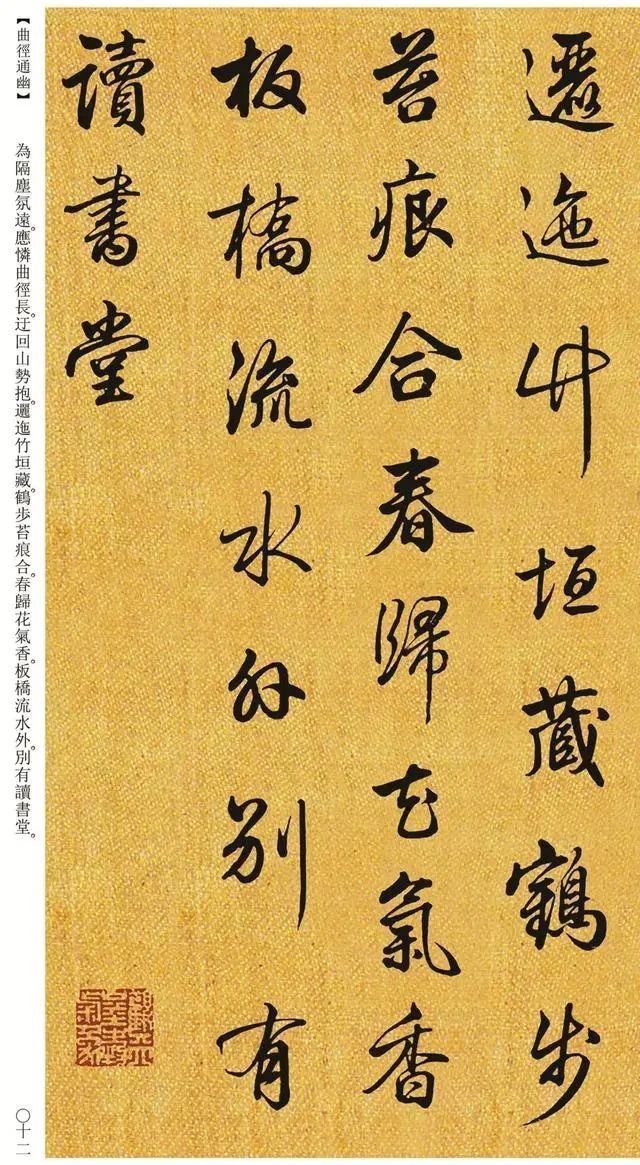 邐迤竹垣藏鶴步
苔痕合春歸花氣香
板橋流水外別有
讀書堂
【曲徑通幽】 為隔塵氛遠。應憐曲徑長。迂回山勢抱。邐迤竹垣藏。鶴步苔痕合。春歸花氣香。板橋流水外。別有讀書堂。
〇十二